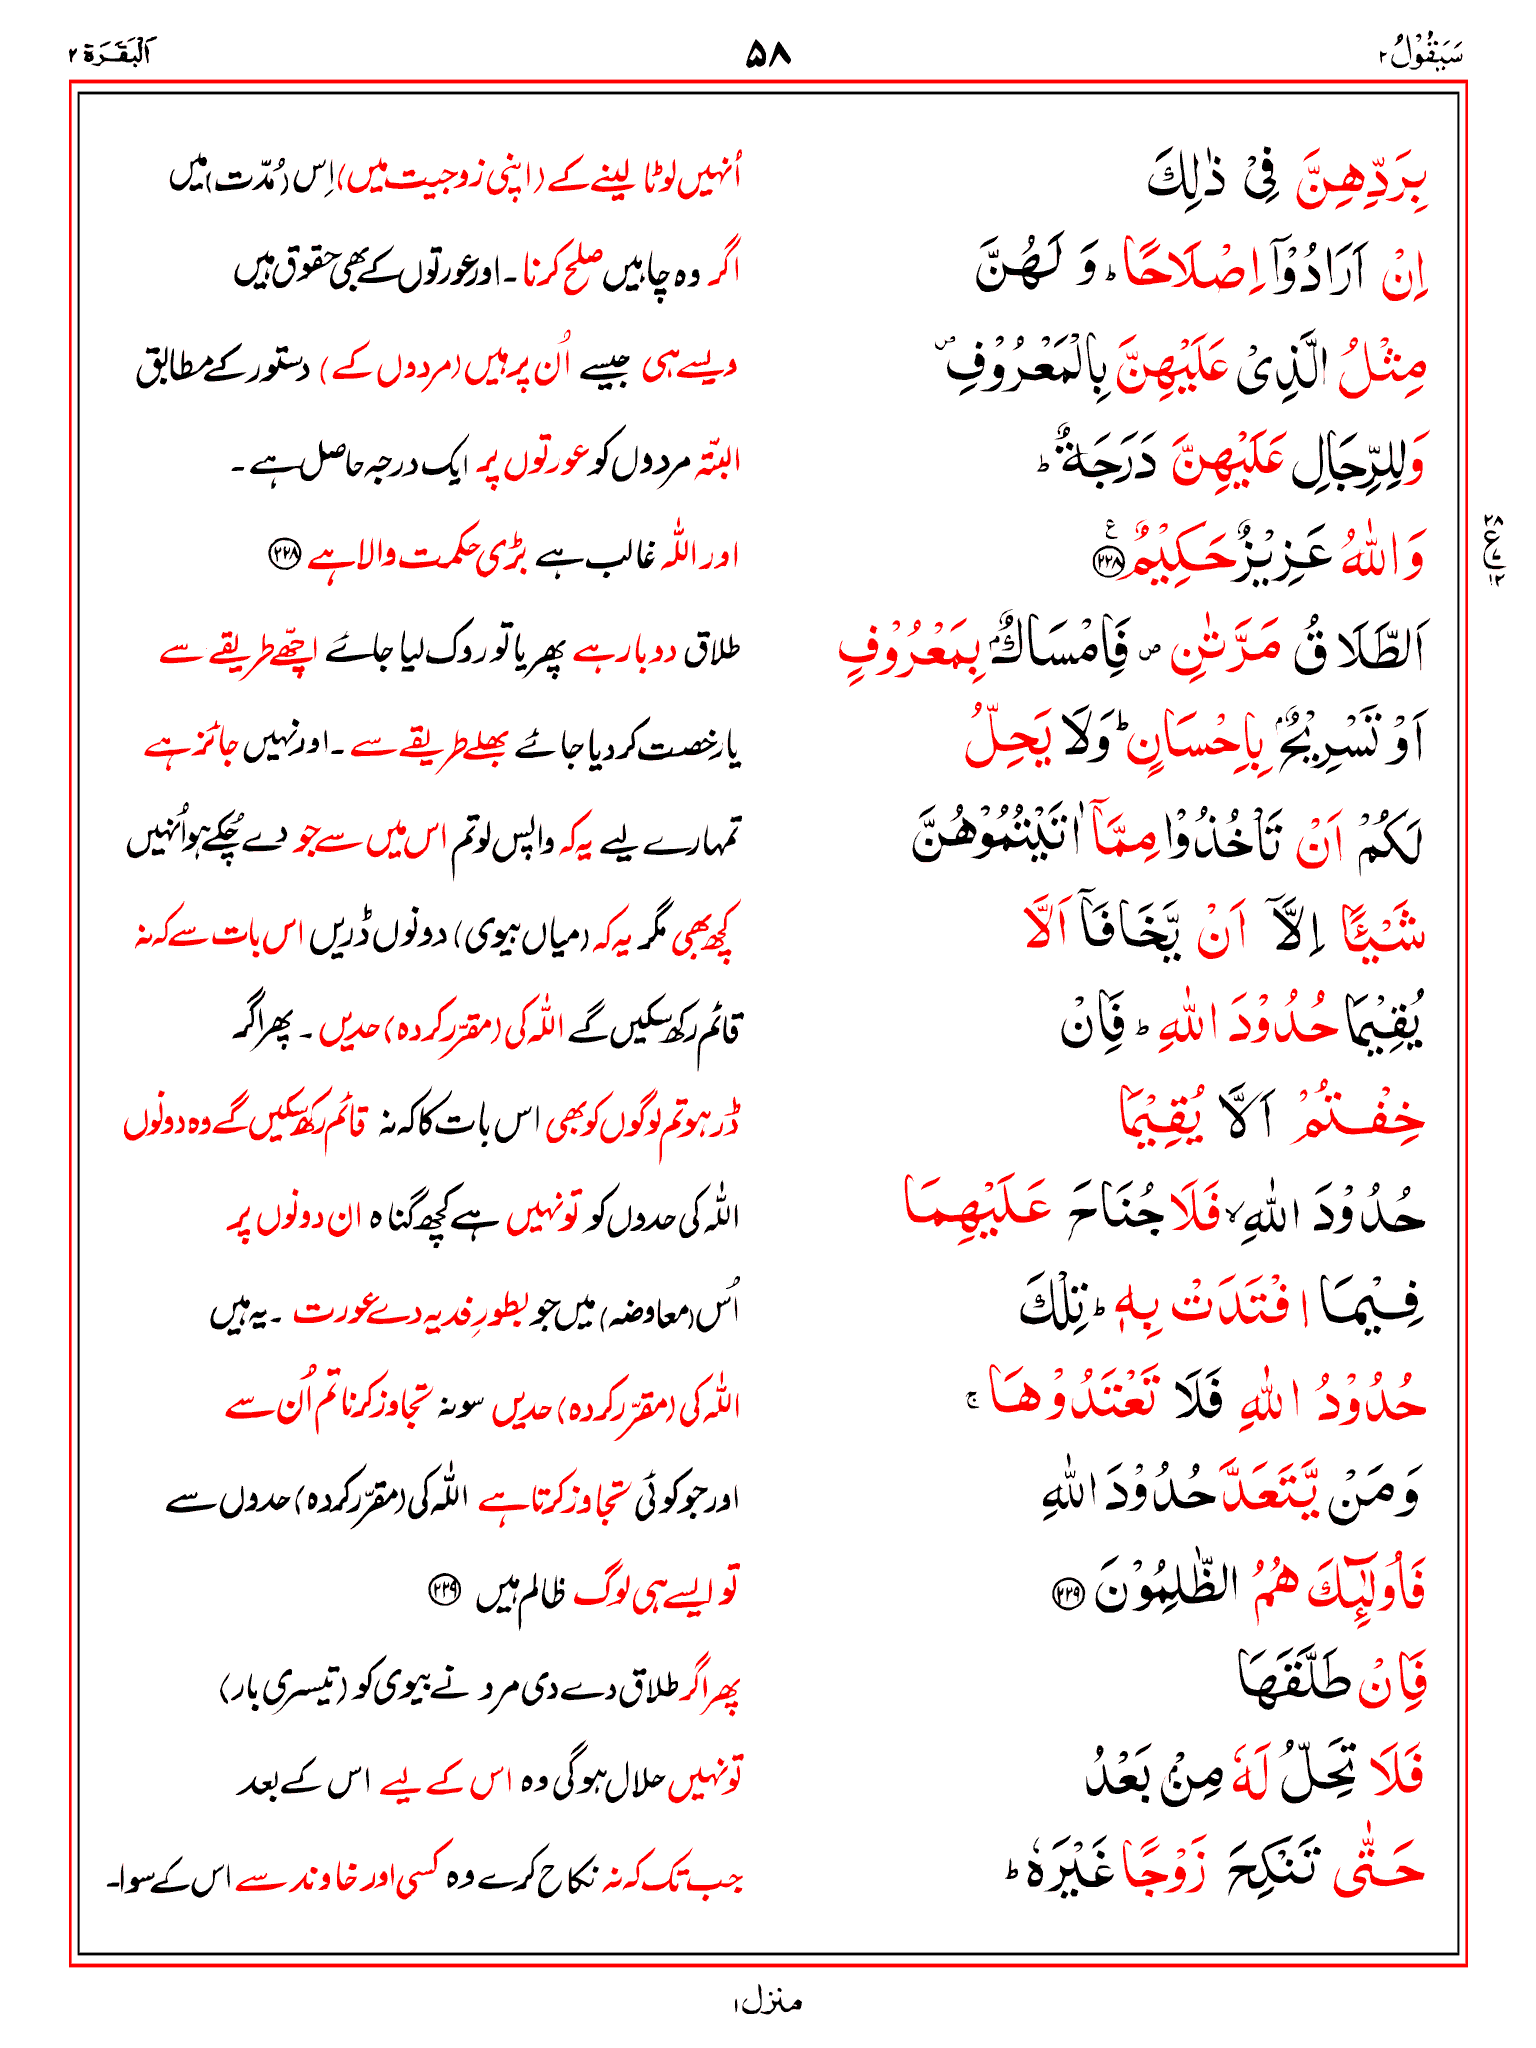 سَيَقُوْلُ ٢ ۵۸ اَلْبَقَرَة ٢
بِرَدِّهِنَّ فِىْ ذٰلِكَ اُنہیں لوٹا لینے کے (اپنی زوجیت میں) اِس (مُدّت) میں
اِنْ اَرَادُوْٓا اِصْلَاحًا ؕ وَ لَهُنَّ اگر وہ چاہیں صلح کرنا ۔ اور عورتوں کے بھی حقوق ہیں
مِثْلُ الَّذِىْ عَلَيْهِنَّ بِالْمَعْرُوْفِ ۪ ویسے ہی جیسے اُن پر ہیں (مردوں کے) دستور کے مطابق
وَلِلرِّجَالِ عَلَيْهِنَّ دَرَجَةٌ ؕ البتّہ مردوں کو عورتوں پر ایک درجہ حاصل ہے ۔
وَاللّٰهُ عَزِيْزٌ حَكِيْمٌ ﴿۲۲۸﴾ ع اور اللّٰہ غالب ہے بڑی حکمت والا ہے ﴿۲۲۸﴾
۲۸ ع ۱۲
اَلطَّلَاقُ مَرَّتٰنِ ۪ فَاِمْسَاكٌۢ بِمَعْرُوْفٍ طلاق دو بار ہے پھر یا تو روک لیا جائے اچھّے طریقے سے
اَوْ تَسْرِيْحٌۢ بِاِحْسَانٍ ؕ وَلَا يَحِلُّ یا رخصت کر دیا جائے بھلے طریقے سے ۔ اور نہیں جائز ہے
لَكُمْ اَنْ تَاْخُذُوْا مِمَّآ اٰتَيْتُمُوْهُنَّ تمہارے لیے یہ کہ واپس لو تم اس میں سے جو دے چُکے ہو اُنہیں
شَيْــًٔا اِلَّآ اَنْ يَّخَافَآ اَلَّا کچھ بھی مگر یہ کہ (میاں بیوی) دونوں ڈریں اس بات سے کہ نہ
يُقِيْمَا حُدُوْدَ اللّٰهِ ؕ فَاِنْ قائم رکھ سکیں گے اللّٰہ کی (مقرّر کردہ) حدیں ۔ پھر اگر
خِفْتُمْ اَلَّا يُقِيْمَا ڈر ہو تم لوگوں کو بھی اس بات کا کہ نہ قائم رکھ سکیں گے وہ دونوں
حُدُوْدَ اللّٰهِ ۙ فَلَا جُنَاحَ عَلَيْهِمَا اللّٰہ کی حدوں کو تو نہیں ہے کچھ گناہ ان دونوں پر
فِيْمَا افْتَدَتْ بِهٖ ؕ تِلْكَ اُس (معاوضہ) میں جو بطورِ فدیہ دے عورت ۔ یہ ہیں
حُدُوْدُ اللّٰهِ فَلَا تَعْتَدُوْهَا ۚ اللّٰہ کی (مقرّر کردہ) حدیں سو نہ تجاوز کرنا تم اُن سے
وَمَنْ يَّتَعَدَّ حُدُوْدَ اللّٰهِ اور جو کوئی تجاوز کرتا ہے اللّٰہ کی (مقرّر کردہ) حدوں سے
فَاُولٰٓئِكَ هُمُ الظّٰلِمُوْنَ ﴿۲۲۹﴾ تو ایسے ہی لوگ ظالم ہیں ﴿۲۲۹﴾
فَاِنْ طَلَّقَهَا پھر اگر طلاق دے دی مرد نے بیوی کو (تیسری بار)
فَلَا تَحِلُّ لَهٗ مِنْۢ بَعْدُ تو نہیں حلال ہو گی وہ اس کے لیے اس کے بعد
حَتّٰى تَنْكِحَ زَوْجًا غَيْرَهٗ ؕ جب تک کہ نہ نکاح کرے وہ کسی اور خاوند سے اس کے سوا۔
منزل ۱